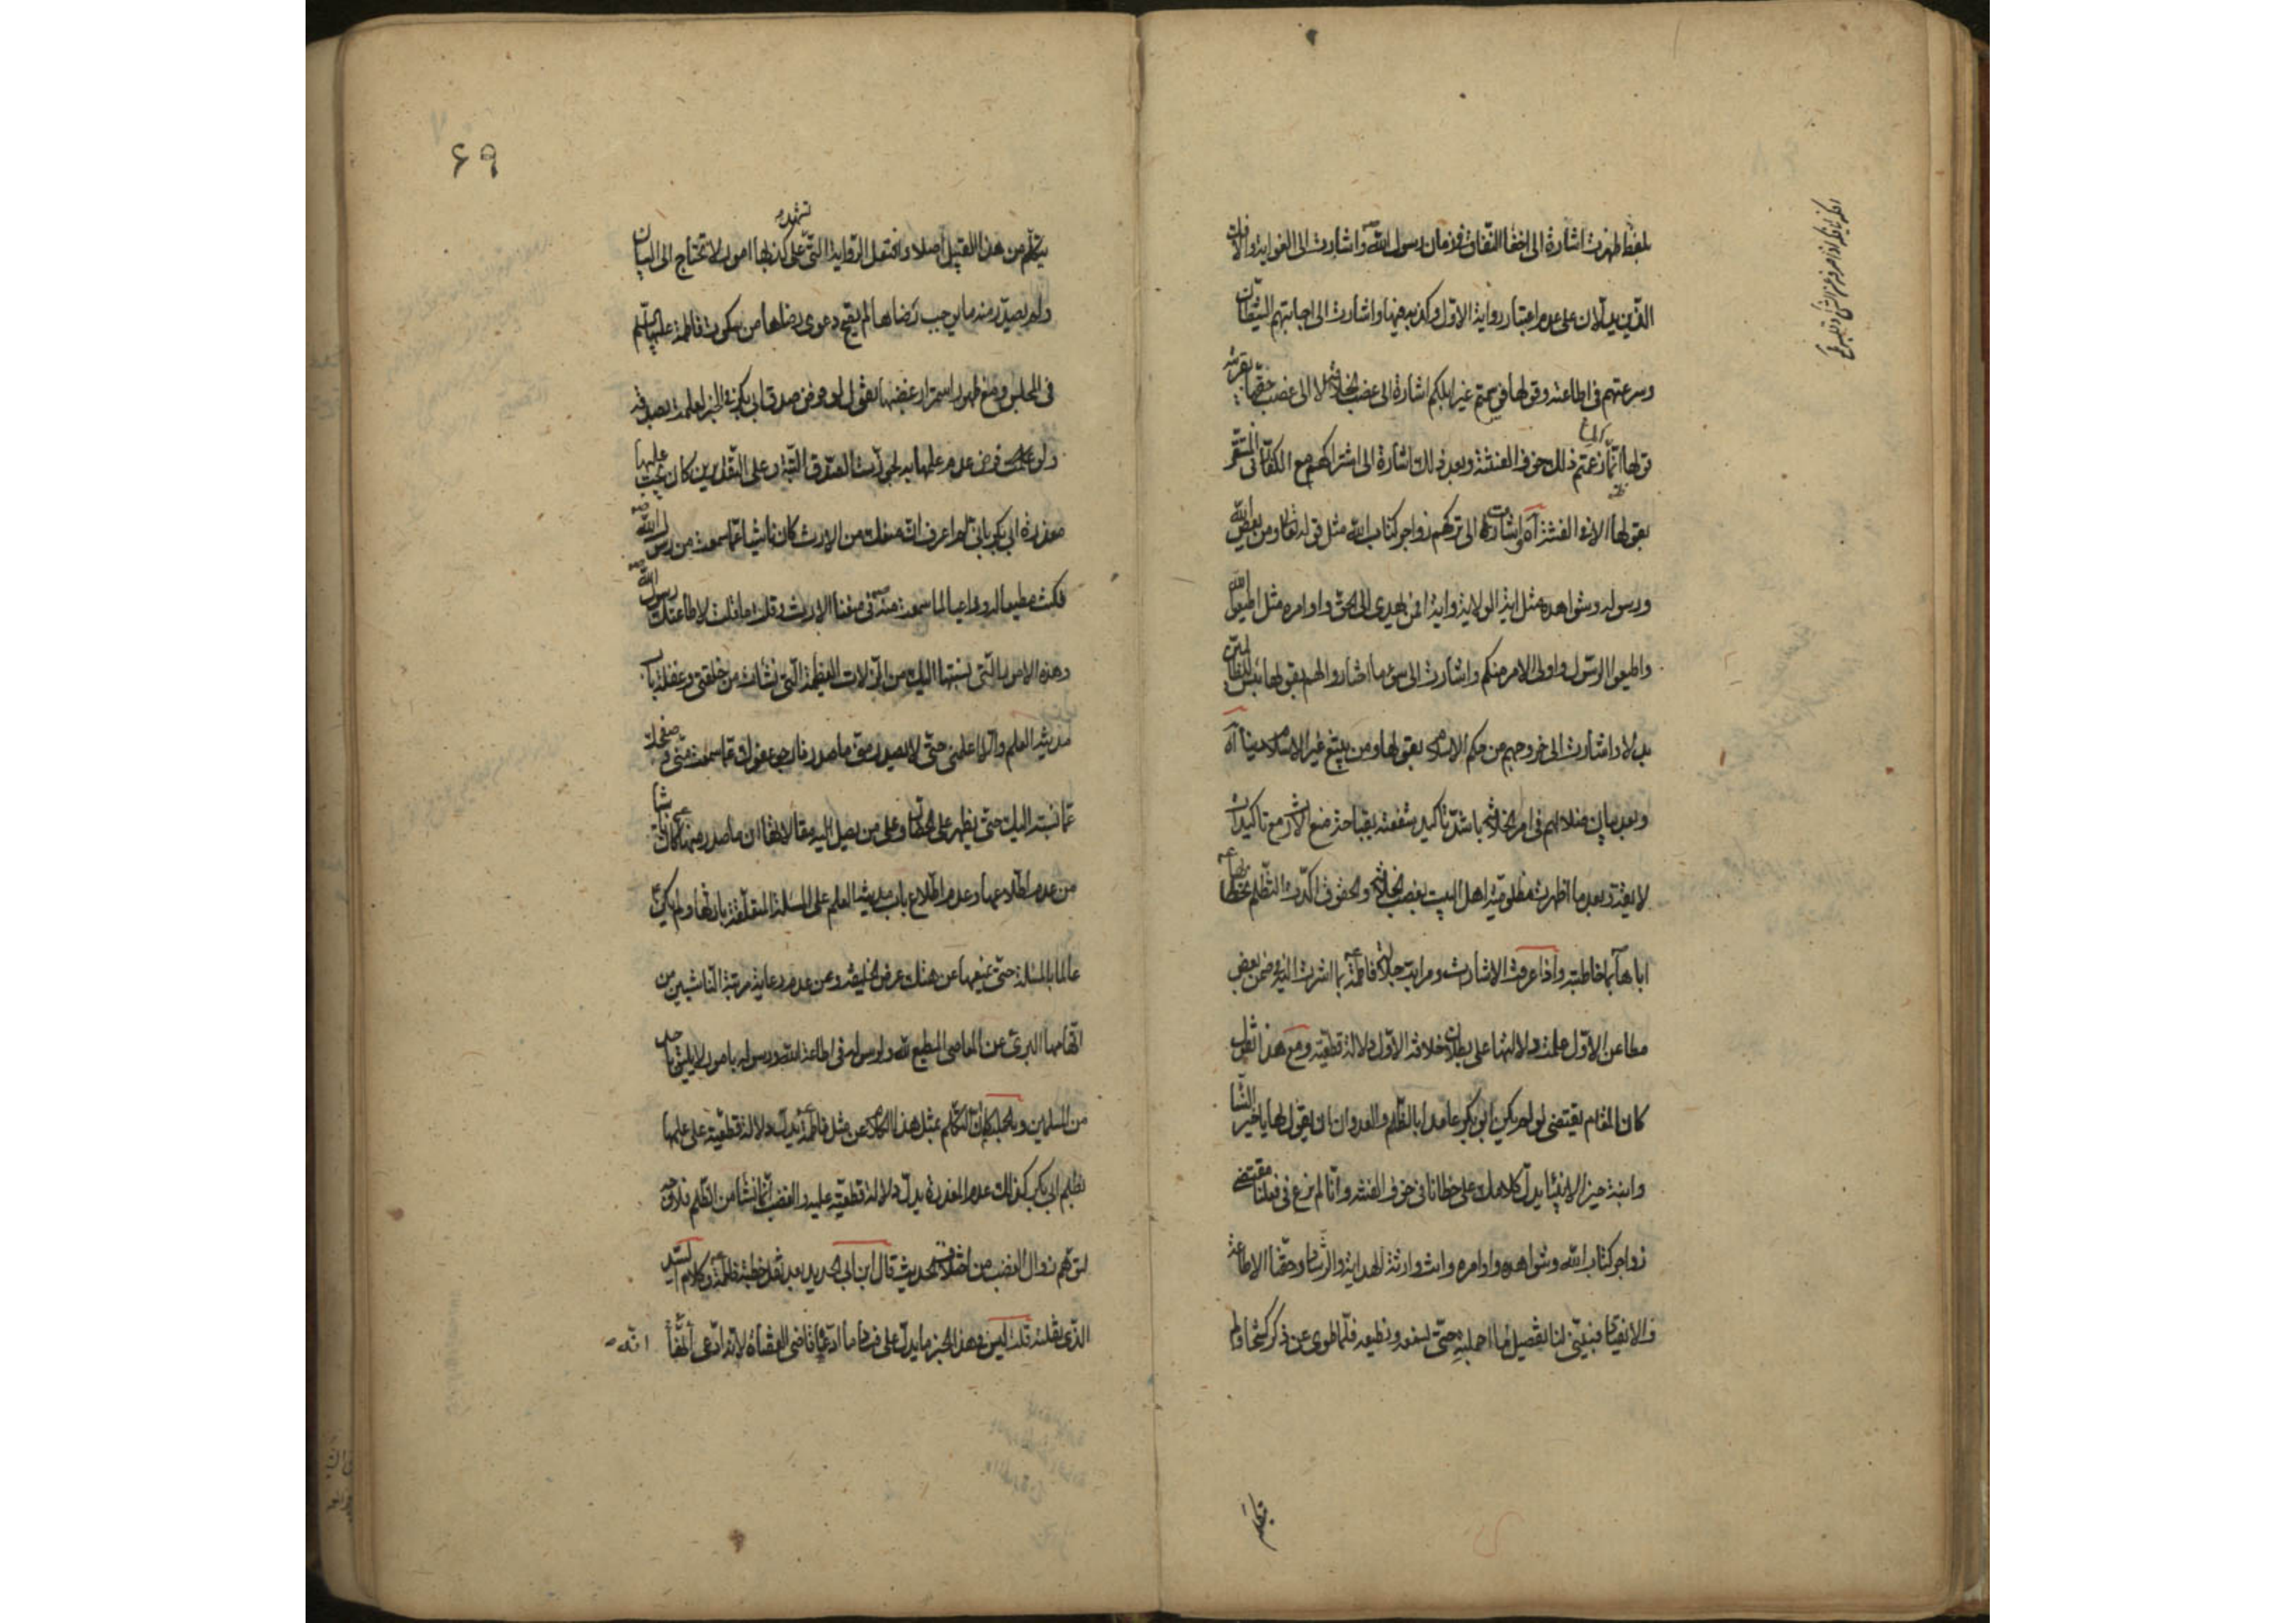 بلفظ ظهرت اشارة الى اخفا النفاق في زمان رسول الله واشارت الى الغواية والافك
الذين يدلان على عدم اعتبار رواية الاول وكذبه فيها واشارت الى اجابتهم الشيطان
وسرعتهم في اطاعته وقولها فوسمتم غير ابلكم اشارة الى غصب الخلافة لا الى غصب حقها بقرينة
قولها انما زعمتم ذلك خوف الفتنة وبعد ذلك اشارة الى اشتراكهم مع الكفار في
بقولها الا في الفتنة آه واشارت الى تركهم زواجر كتاب الله مثل قوله تعالى ومن يعص الله
ورسوله وشواهده مثل اية الولاية واية افمن يهدى الى الحق واوامره مثل اطيعوا الله
واطيعوا الرسول واولى الامر منكم واشارت الى سوء ما اختاروا لهم بقولها بئس للظالمين
بدلا واشارت الى خروجهم من حكم الاسلام بقولها ومن يبتغ غير الاسلام دينا آه
وبعد بيان ضلالهم في امر الخلافة باشد تاكيد شفعته بقباحة منع الارث مع تاكيدات
لا يعد وبعد ما اظهرت مظلومية اهل البيت بغصب الخلافة والحقوق اكدت التظلم بخطابها
اباها بما خاطبته واذا عرفت الاشارات ومراتب جلالة فاطمة بما اشرت اليه في ضمن بعض
مطاعن الاول علمت دلالتها على بطلان خلافة الاول دلالة قطعية ومع هذا نقول
كان المقام يقتضى لو لم يكن ابو بكر عامدا بالظلم والعدوان ان يقول لها يا خير النساء
وابنة خير الانبياء يدل كلامك على خطائنا في خوف الفتنة وانا لم نرع في فعلنا مقتضى
زواجر كتاب الله وشواهده واوامره وانت وارثة الهداية والرشاد وحقنا الاطاعة
والانقياد فبيني لنا تفصيل ما اجملته حتى نسمع ونطيعه فلما طوى عن ذكر كشحا ولم
يتكلم
٦٩
يتكلم من هذا القبيل اصلا وافتعل الرواية التي تشهد على كذبها امور لا تحتاج الى البيان
ولم يصدر منه ما يوجب رضاها لم يقبح دعوى رضاها من سكوت فاطمة عليها السلام
في المجلس ومع ظهور استمرار غضبها نقول لو فرض صدق ابي بكر في الخبر لعلمت بصدقه
ولو فرض عدم علمها به لجوزت الصدق البتة وعلى التقديرين كان يجب عليها
معذرة ابي بكر باني لم اعرف ان منعك من الارث كان ناشيا عما سمعت من رسول الله
فكنت مطيعا له وراعيا لما سمعت منه في منعنا الارث وقلت ما قلت لاطاعتك رسول الله
وهذه الامور التي نسبتها اليك من الزلات العظيمة التي نشأت من خلقتي وغفلة باب
مدينة العلم والا لما علمني حتى لا يصدر مني ما صدر فارجو عفوك عما سمعت مني وصفحك
عما نسبته اليك حتى يظهر على الحضار وعلى من يصل اليه مقالاتنا ان ما صدر منها كان ناشيا
من عدم اطلاعها وعدم اطلاع باب مدينة العلم على المسئلة المتعلقة بارثها ولم يكن
عالما بالمسئلة حتى يمنعها عن هتك عرض الخليفة وعن عدم رعاية مرتبة الناشيين من
اتهامها البرئ عن المعاصي المطيع لله ولرسوله في اطاعة الله ورسوله بامور لا يليق باحد
من المسلمين وبالجملة كما ان التكلم بمثل هذا الكلام عن مثل فاطمة يدل دلالة قطعية على علمها
بظلم ابي بكر كذلك عدم المعذرة يدل دلالة قطعية عليه والغضب انما نشأ من الظلم فلا وجه
لتوهم زوال الغضب من اختلاق الحديث قال ابن ابي الحديد بعد نقل خطبة فاطمة وكلام السيد
الذي نقلته قلت ليس في هذا الخبر ما يدل على فساد ما ادعاه قاضى القضاة لانه ادعى انها